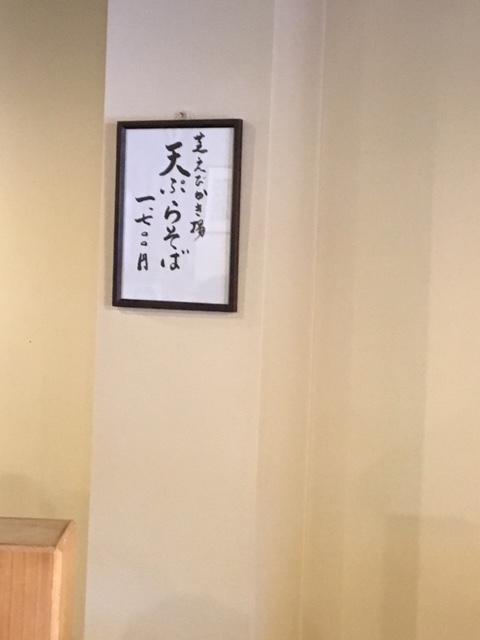 芝えびかき揚
天ぷらそば
一、七〇〇円